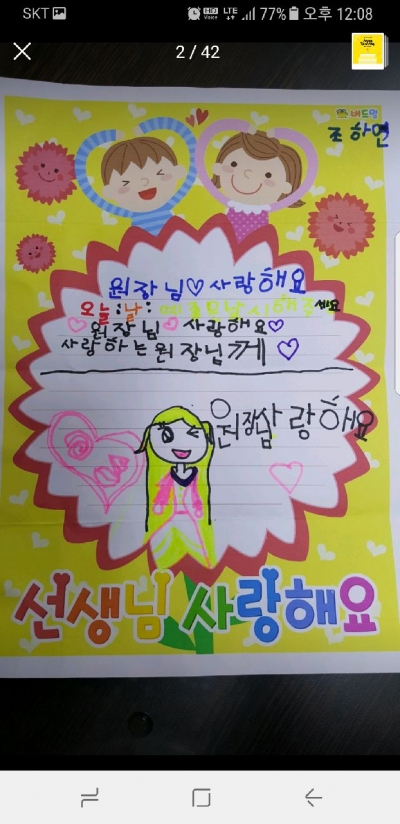 SKT HD Voice LTE 77% 오후 12:08
2 / 42
조하연
원장님♡사랑해요
오늘:날:
원장님♡사랑해요♡
사랑하는원장님께♡
사랑해요
선생님 사랑해요